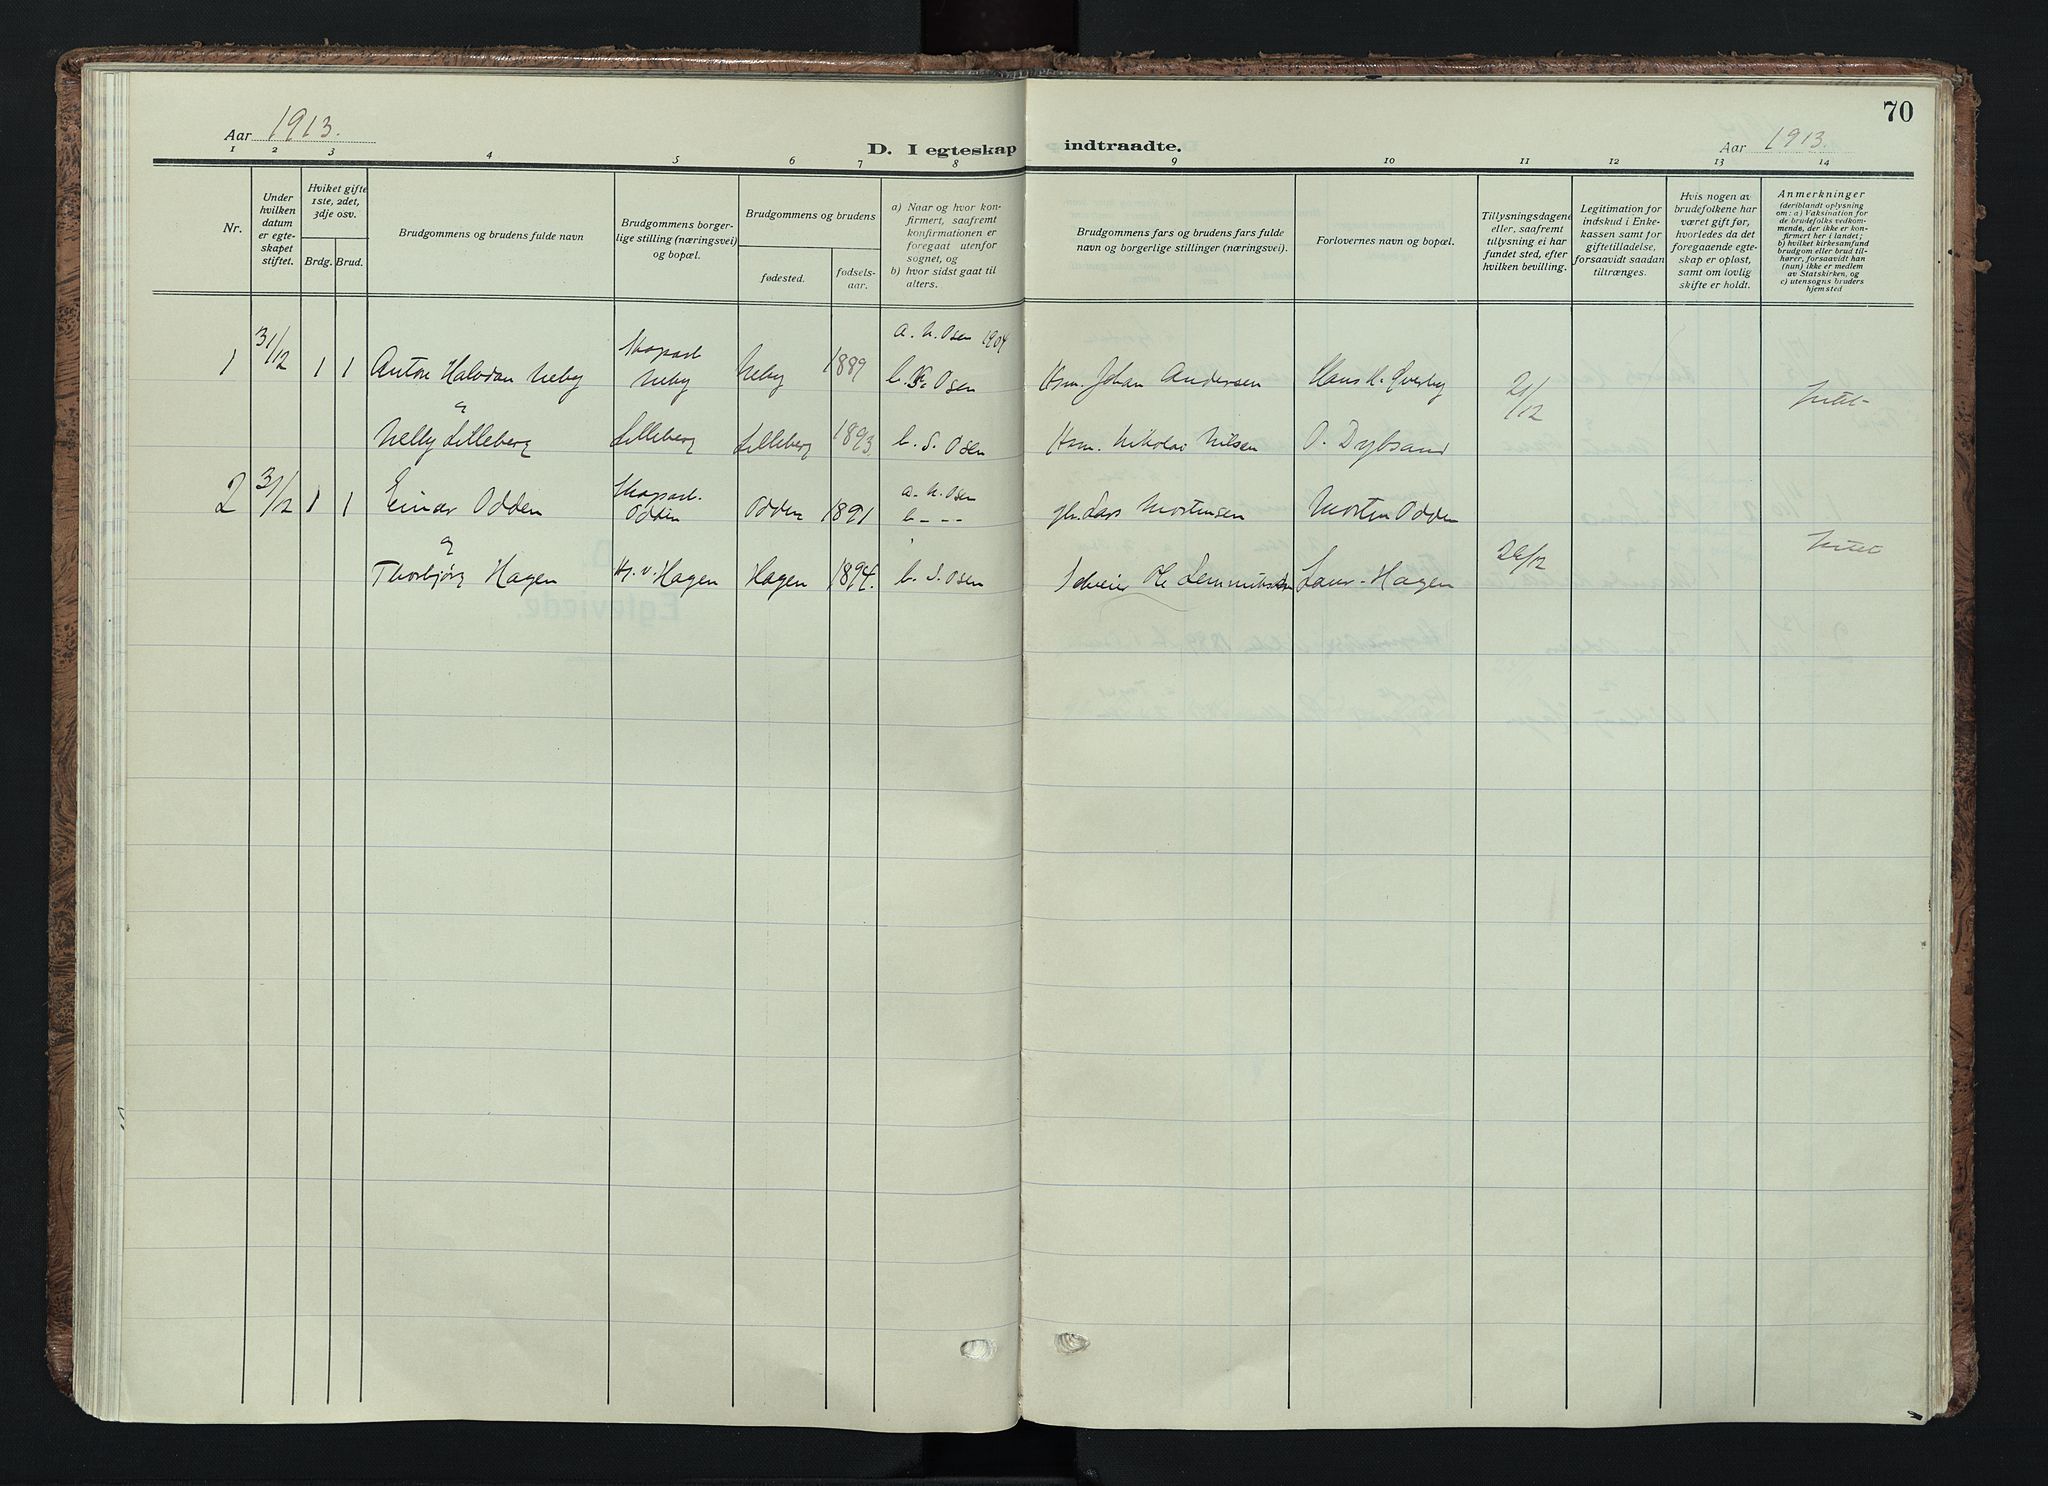 70
Aar 1913.
D. I egteskap indtraadte.
Aar 1913.
1 2 3 4 5 6 7 8 9 10 11 12 13 14
Nr.
Under hvilken datum er egteskapet stiftet.
Hviket gifte 1ste, 2det, 3dje osv.
Brdg. Brud.
Brudgommens og brudens fulde navn
Brudgommens borgerlige stilling (næringsvei) og bopæl.
Brudgommens og brudens
fødested.
fødselsaar.
a) Naar og hvor konfirmert, saafremt konfirmationen er foregaat utenfor sognet, og
b) hvor sidst gaat til alters.
Brudgommens fars og brudens fars fulde navn og borgerlige stillinger (næringsvei).
Forlovernes navn og bopæl.
Tillysningsdagene eller, saafremt tillysning ei har fundet sted, efter hvilken bevilling.
Legitimation for indskud i Enkekassen samt for giftetilladelse, forsaavidt saadan tiltrænges.
Hvis nogen av brudefolkene har været gift før, hvorledes da det foregaaende egteskap er opløst, samt om lovlig skifte er holdt.
Anmerkninger
(deriblandt oplysning om: a) Vaksination for de brudefolks vedkommende, der ikke er konfirmert her i landet; b) hvilket kirkesamfund brudgom eller brud tilhører, forsaavidt han (hun) ikke er medlem av Statskirken, og c) utensogns bruders hjemsted
a. N. Osen 1904
1 31/12 1 1 Anton Halvdan Neby Skogsarb. Neby Neby 1889 b. S. Osen Hsm. Johan Andersen Hans H. Qverby 21/12 Intet
&
Nelly Lilleberg Lilleberg Lilleberg 1893 b. S. Osen Hsm. Nikolai Nilsen O. Dybsand
2 31/12 1 1 Einar Odden Skogsarb. Odden Odden 1891 a. N. Osen b - - - Lars Mortensen Morten Odden
&
Thorbjørg Hagen Hagen Hagen 1894. b. S. Osen Selveier Ole Hagen 26/12 Intet